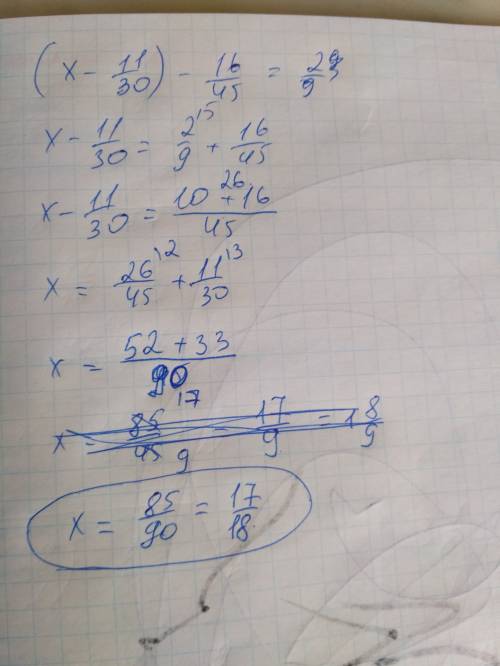 (x - 11/30) - 16/45 = 2/9
x - 11/30 = 2/9 ⁵ + 16/45
x - 11/30 = 10 + 16/45 ²⁶
x = 26/45 ² + 11/30 ³
x = 52 + 33/90
x = 85/45 ¹⁷ ₉ = 17/9 = 1 8/9
x = 85/90 = 17/18